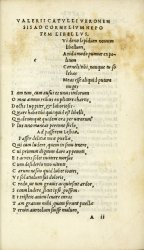 VALERII CATVLLI VERONEN
SIS AD CORNELIVM NEPO
TEM LIBELLVS.
Vi dono lepidum nouum
libellum,
Arida modo pumice expoli
tum
Corneli tibi, nanque tu so
lebas
Meas esse aliquid putare nu
gas
I am tum, cum ausus es unus italorum
O mne æuum tribus explicare chartis,
D octis Iupiter, & laboriosis.
Q uare habe tibi quicquid hoc libelli
Q
P lus uno maneat perenne seclo.
Ad passerem Lesbiæ.
P asser deliciæ meæ puellæ
Q ui cum ludere, quem in sinu tenere,
Q
E t acris solet incitare morsus
C um desiderio meo nitenti
C arum nescio quid libet iocari
V t solatiolum sui doloris
C redo, ut cum grauis acquiescet ardor
T ecum ludere sicut ipsa possem,
E t tristis animi leuare curas
T am gratum mihi quam ferunt puellæ
P ernici aureolum fuisse malum,
A ii